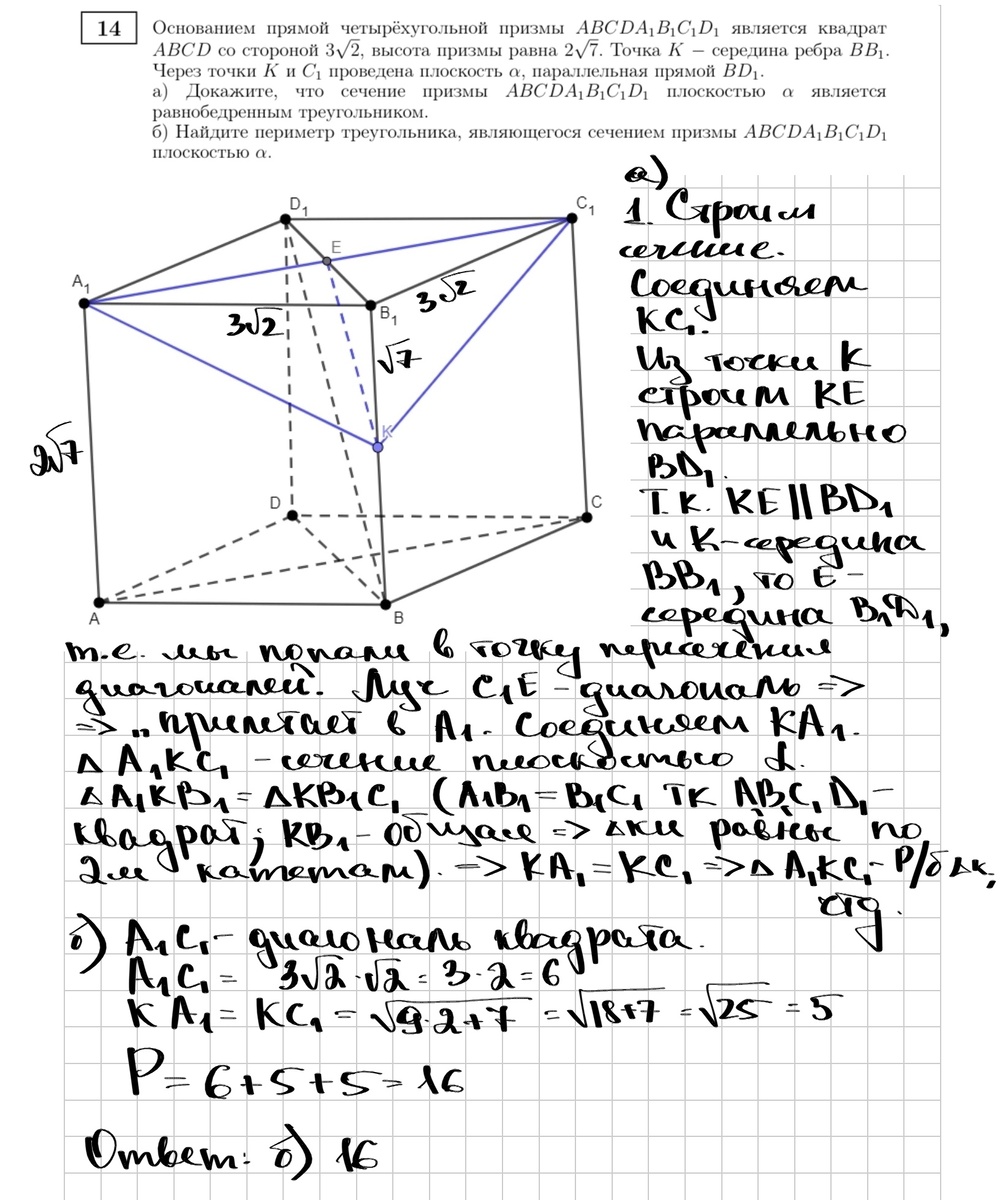 14
Основанием прямой четырёхугольной призмы ABCDA₁B₁C₁D₁ является квадрат
ABCD со стороной 3√2, высота призмы равна 2√7. Точка K − середина ребра BB₁.
Через точки K и C₁ проведена плоскость α, параллельная прямой BD₁.
а) Докажите, что сечение призмы ABCDA₁B₁C₁D₁ плоскостью α является
равнобедренным треугольником.
б) Найдите периметр треугольника, являющегося сечением призмы ABCDA₁B₁C₁D₁
плоскостью α.
D₁
C₁
E
A₁
B₁
3√2
3√2
√7
K
2√7
D
C
A
B
а)
1. Строим
сечение.
Соединяем
KC₁.
Из точки K
строим KE
параллельно
BD₁.
Т.К. KE || BD₁
и K-середина
BB₁, то E –
середина B₁D₁,
т.е. мы попали в точку пересечения
диагоналей. Луч C₁E – диагональ =>
=> „прилетает в A₁. Соединяем KA₁.
△ A₁KC₁ – сечение плоскостью α.
△A₁KB₁ = △KB₁C₁ (A₁B₁ = B₁C₁ ТК AB₁C₁D₁ –
квадрат; KB₁ – общая => △ки равны по
2м катетам). => KA₁ = KC₁ => △ A₁KC₁ – р/б △к,
чтд.
б) A₁C₁ – диагональ квадрата.
A₁C₁ = 3√2 · √2 = 3 · 2 = 6
KA₁ = KC₁ = √9·2+7 = √18+7 = √25 = 5
P = 6 + 5 + 5 = 16
Ответ: б) 16